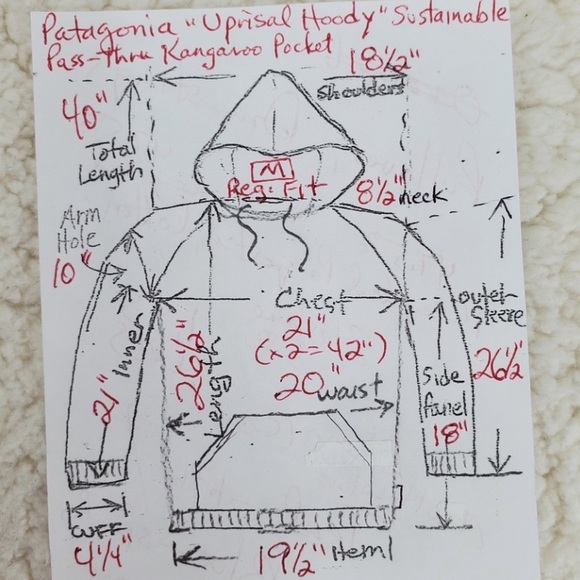 Patagonia "Uprisal Hoody" Sustainable
Pass-Thru Kangaroo Pocket
18½"
Shoulders
40"
Total
Length
M
Reg. Fit
8½" neck
Arm
Hole
10"
Chest
21"
(x2=42")
20" waist
outer
Sleeve
26½"
Inner
21"
26½"
Length
Side
Panel
18"
Cuff
4¼"
19½" Hem